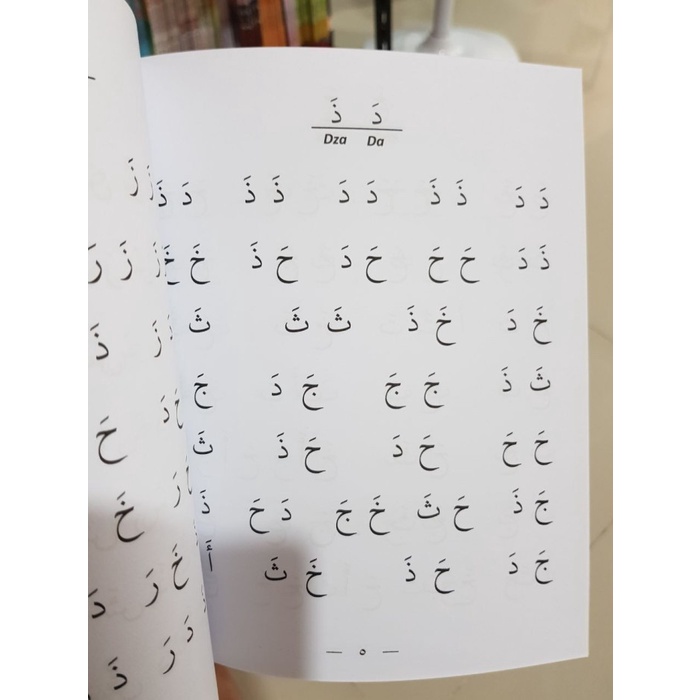 دَ ذَ
Da Dza
دَ دَ ذَ ذَ دَ دَ ذَ ذَ دَ ذَ
ذَ دَ حَ حَ حَ دَ حَ ذَ خَ خَ
خَ دَ خَ ذَ ثَ ثَ ثَ
ثَ ذَ جَ جَ جَ دَ جَ
حَ حَ حَ دَ حَ ذَ ثَ
جَ ذَ حَ ثَ خَ جَ دَ حَ ذَ
جَ دَ حَ ذَ خَ ثَ أَ
— ٥ —
زَ
زَ رَ
زَ ذَ
حَ دَ حَ
رَ خَ
خَ رَ دَ
دَ رَ ذَ